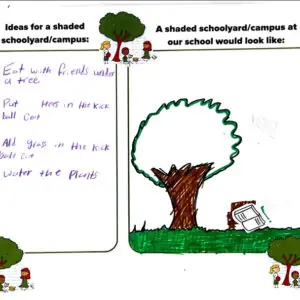 Ideas for a shaded
schoolyard/campus:
Eat with friends under
a tree
Put trees in the kick
ball Cort
Add grass in the kick
ball Cort
Water the Plants
A shaded schoolyard/campus at
our school would look like: